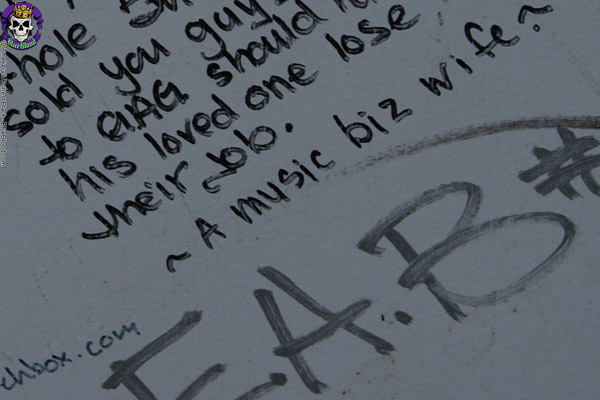 sold you guys
to GAG should
his loved one lose
their job.
~ A music biz wife ~
F.A.B #
chbox.com